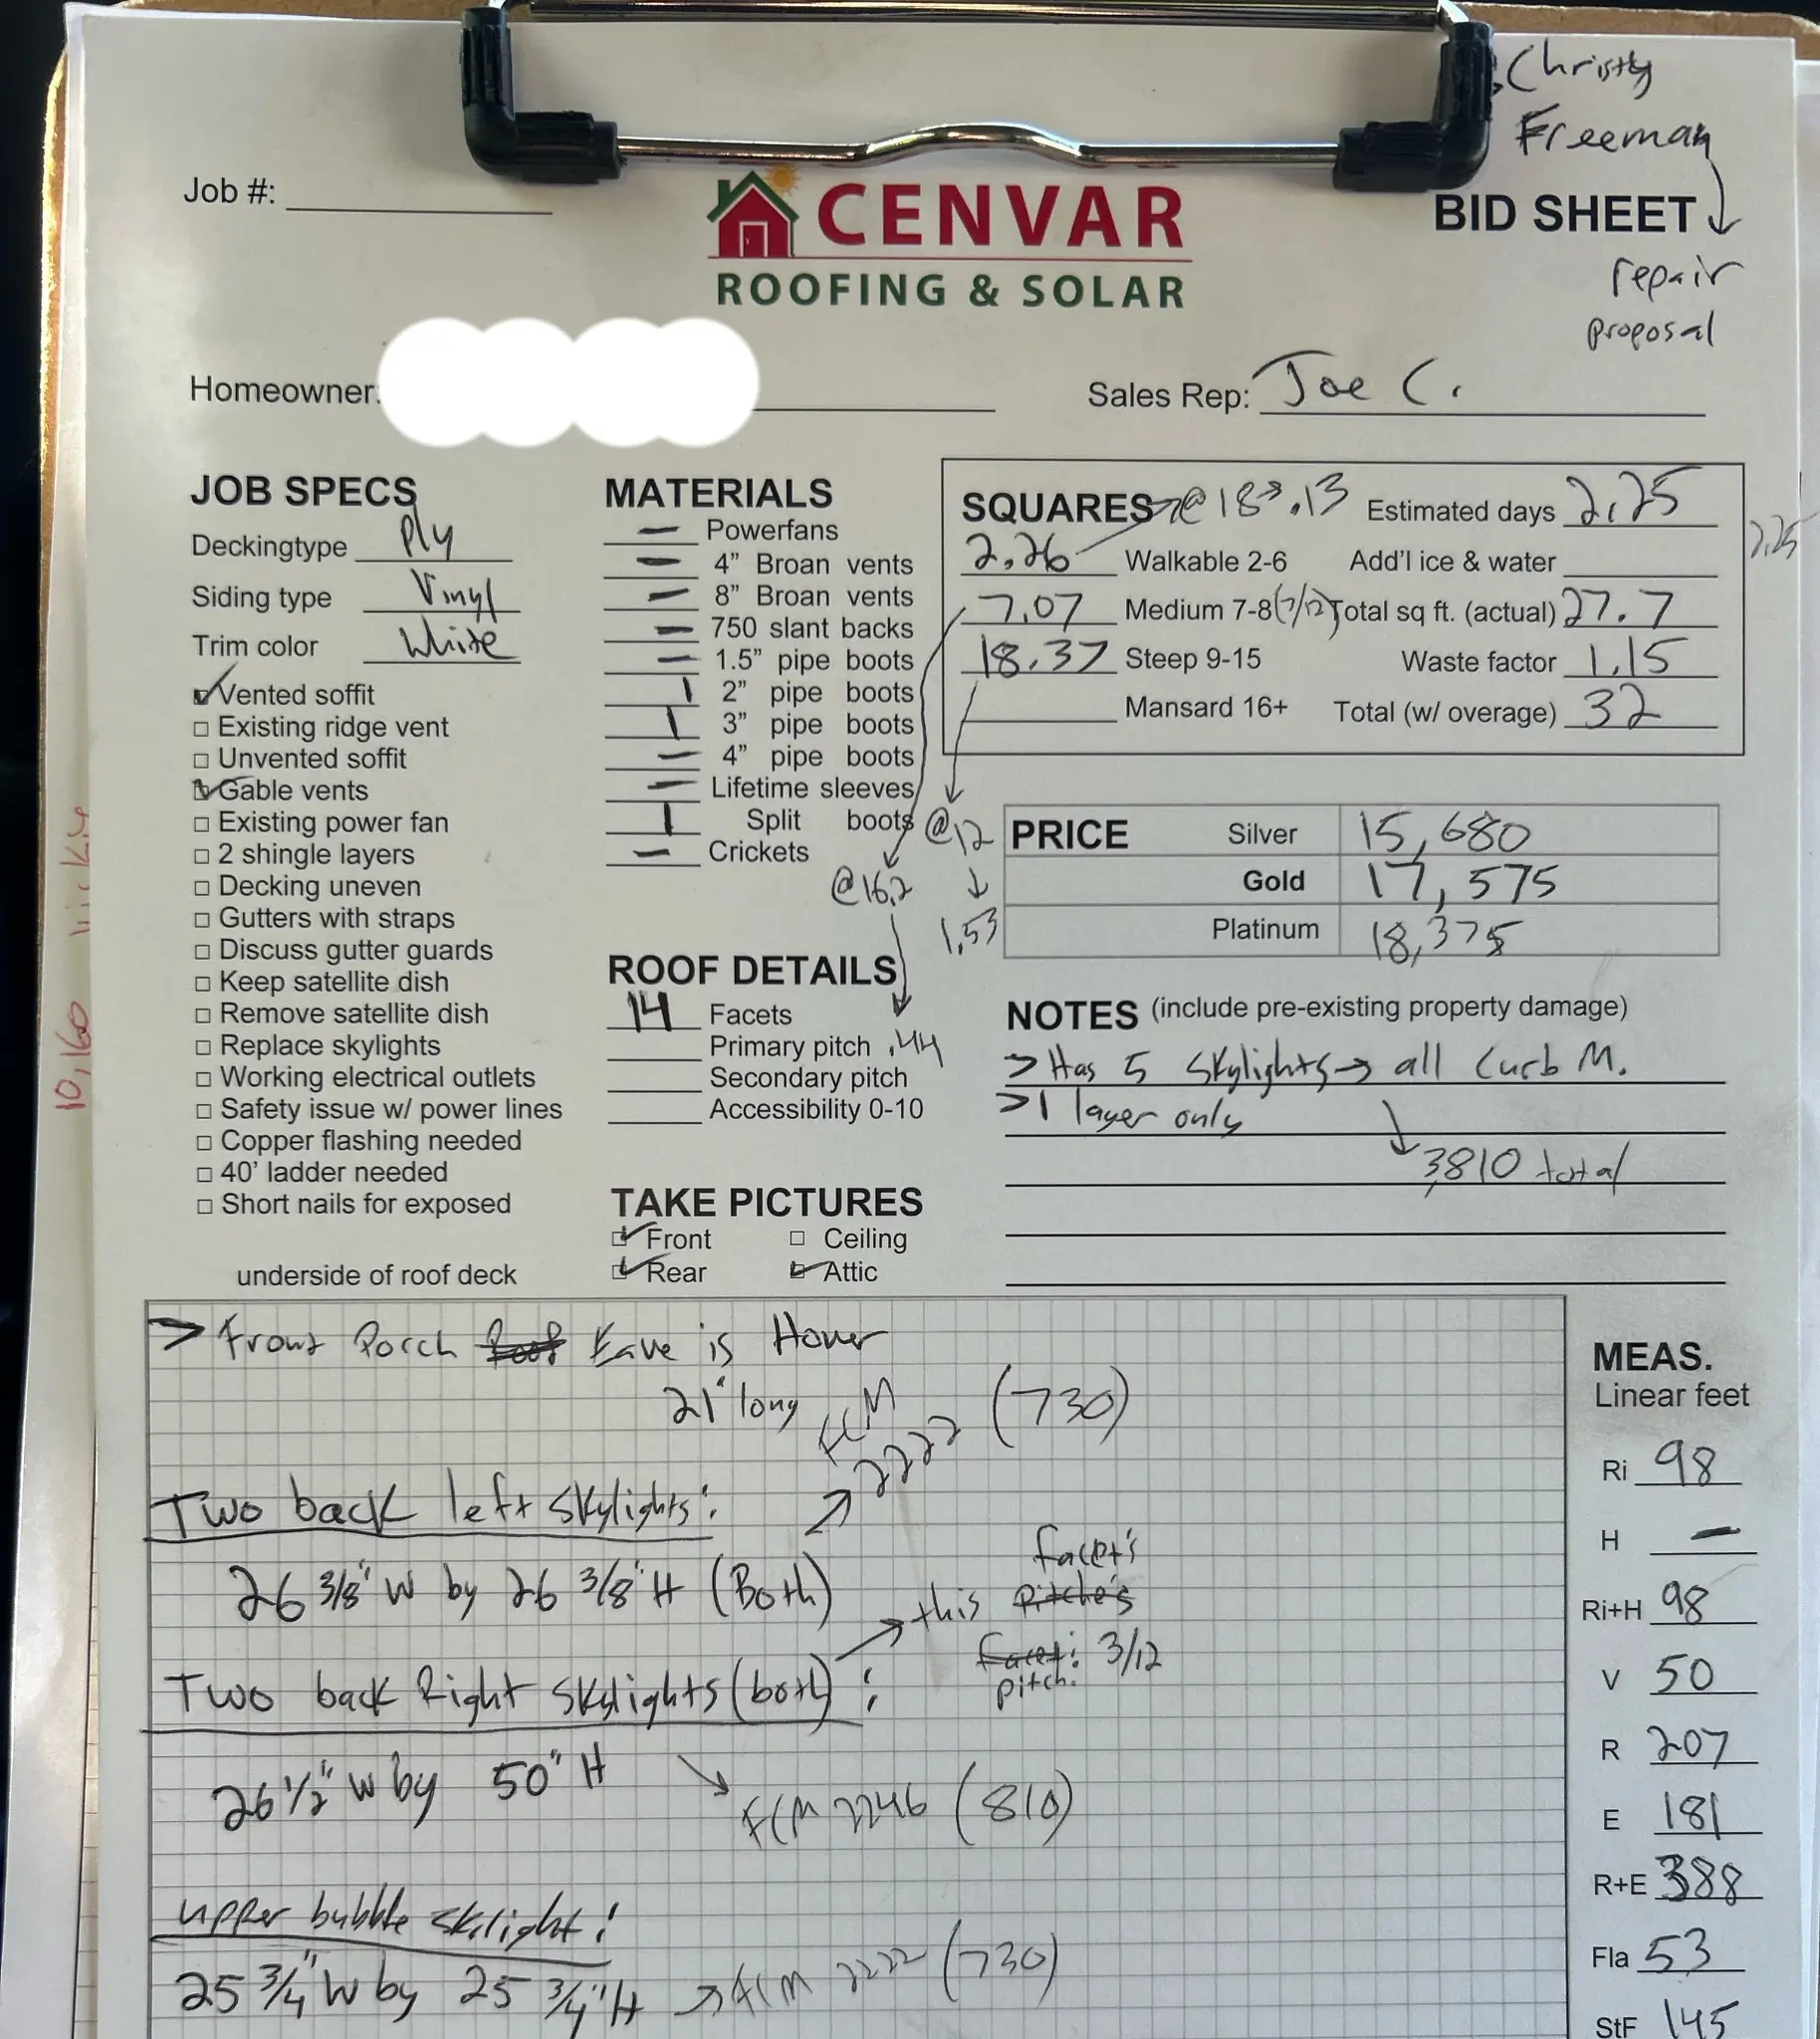 Christy
Freeman
Job #:
CENVAR
ROOFING & SOLAR
BID SHEET
repair
proposal
Homeowner:
Sales Rep: Joe C.
JOB SPECS
Deckingtype Ply
Siding type Vinyl
Trim color White
Vented soffit
Existing ridge vent
Unvented soffit
Gable vents
Existing power fan
2 shingle layers
Decking uneven
Gutters with straps
Discuss gutter guards
Keep satellite dish
Remove satellite dish
Replace skylights
Working electrical outlets
Safety issue w/ power lines
Copper flashing needed
40' ladder needed
Short nails for exposed
underside of roof deck
MATERIALS
— Powerfans
— 4" Broan vents
— 8" Broan vents
— 750 slant backs
— 1.5" pipe boots
1 2" pipe boots
1 3" pipe boots
— 4" pipe boots
— Lifetime sleeves
1 Split boots
— Crickets
@16.2
.44
@12
1.53
ROOF DETAILS
14 Facets
Primary pitch
Secondary pitch
Accessibility 0-10
TAKE PICTURES
Front Ceiling
Rear Attic
SQUARES → @18 → .13
2.26 Walkable 2-6
7.07 Medium 7-8 (7/12)
18.37 Steep 9-15
Mansard 16+
Estimated days 2.25
2.25
Add'l ice & water
Total sq ft. (actual) 27.7
Waste factor 1.15
Total (w/ overage) 32
PRICE
Silver 15,680
Gold 17,575
Platinum 18,375
NOTES (include pre-existing property damage)
> Has 5 skylights → all curb M.
> 1 layer only
3810 total
10,160
> Front Porch Eave is Hover
21" long
FCM
2222 (730)
Two back left skylights:
26 3/8" W by 26 3/8" H (Both)
this facet's
pitch: 3/12
Two back Right skylights (both):
26 1/2" W by 50" H
FCM 2246 (810)
upper bubble skilight:
25 3/4" W by 25 3/4" H → FCM 2222 (730)
MEAS.
Linear feet
Ri 98
H —
Ri+H 98
V 50
R 207
E 181
R+E 388
Fla 53
StF 145